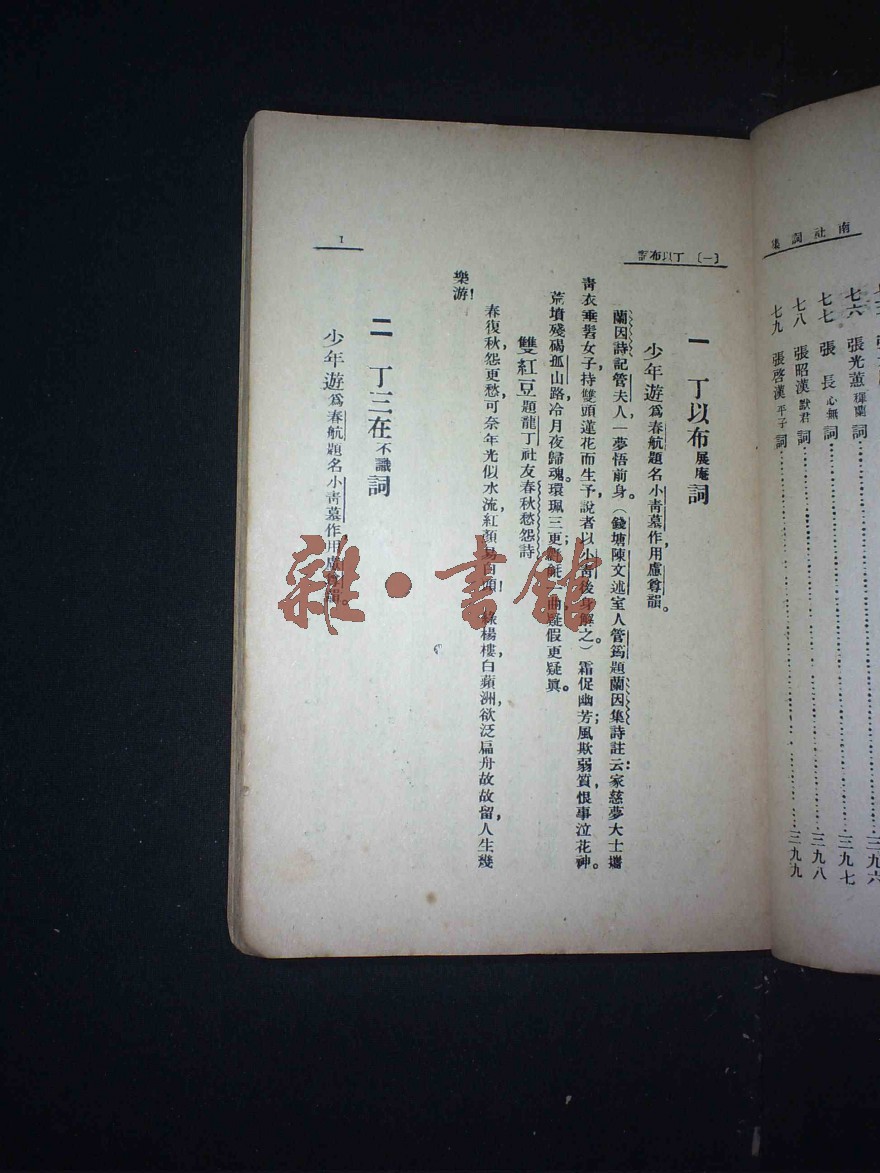 南社詞集
張光蕙 穉蘭 詞……三九六
七七 張長 心無 詞……三九七
七八 張昭漢 默君 詞……三九八
七九 張啓漢 平子 詞……三九九
〔一〕丁以布詞
1
一 丁以布 展庵 詞
少年遊 爲春航題名小青墓作,用盧尊韻。
蘭因詩記管夫人,一夢悟前身。(錢塘陳文述室人管筠題蘭因集詩註云:家慈夢大士攜
青衣垂髫女子,持雙頭蓮花而生予,說者以小青後身解之。)霜促幽芳;風欺弱質,恨事泣花神。
荒墳殘碣孤山路,冷月夜歸魂。環珮三更;氍毹曲,疑假更疑眞。
雙紅豆 題龍丁社友春秋愁怨詩
春復秋,怨更愁,可奈年光似水流,紅顏易白頭! 綠楊樓,白蘋洲,欲泛扁舟故故留,人生幾
樂游!
二 丁三在 不識 詞
少年遊 爲春航題名小青墓作,用盧尊韻。
雜·書館